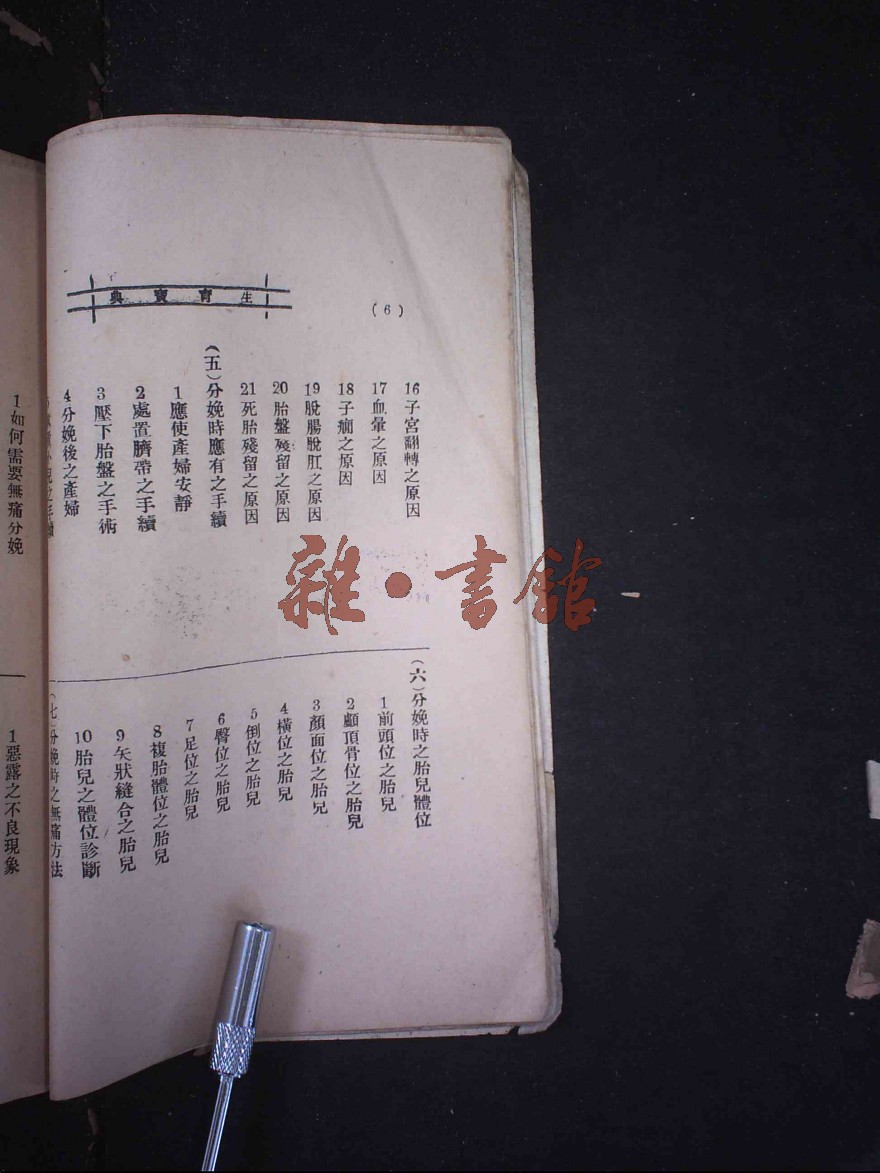 生育寶典
(6)
16子宮翻轉之原因
17血暈之原因
18子癎之原因
19脫腸脫肛之原因
20胎盤殘留之原因
21死胎殘留之原因
(五)分娩時應有之手續
1應使產婦安靜
2處置臍帶之手續
3壓下胎盤之手術
4分娩後之產婦
兒之手續
(六)分娩時之胎兒體位
1前頭位之胎兒
2顱頂骨位之胎兒
3顏面位之胎兒
4橫位之胎兒
5倒位之胎兒
6臀位之胎兒
7足位之胎兒
8複胎體位之胎兒
9矢狀縫合之胎兒
10胎兒之體位診斷
(七)分娩時之無痛方法
1如何需要無痛分娩
1惡露之不良現象
雜·書館